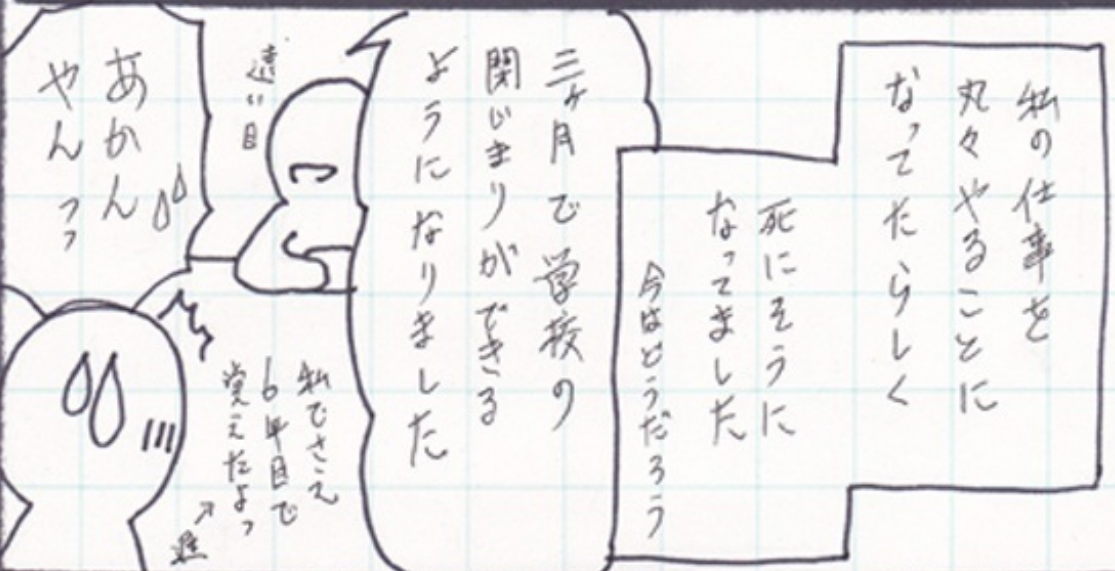 私の仕事を
丸々やることに
なってたらしく
死にそうに
なってました
今はどうだろう
三ヶ月で学校の
閉じまりができる
ようになりました
遠い目
私でさえ
6年目で
覚えたよっ
遅
あかん
やんっっ